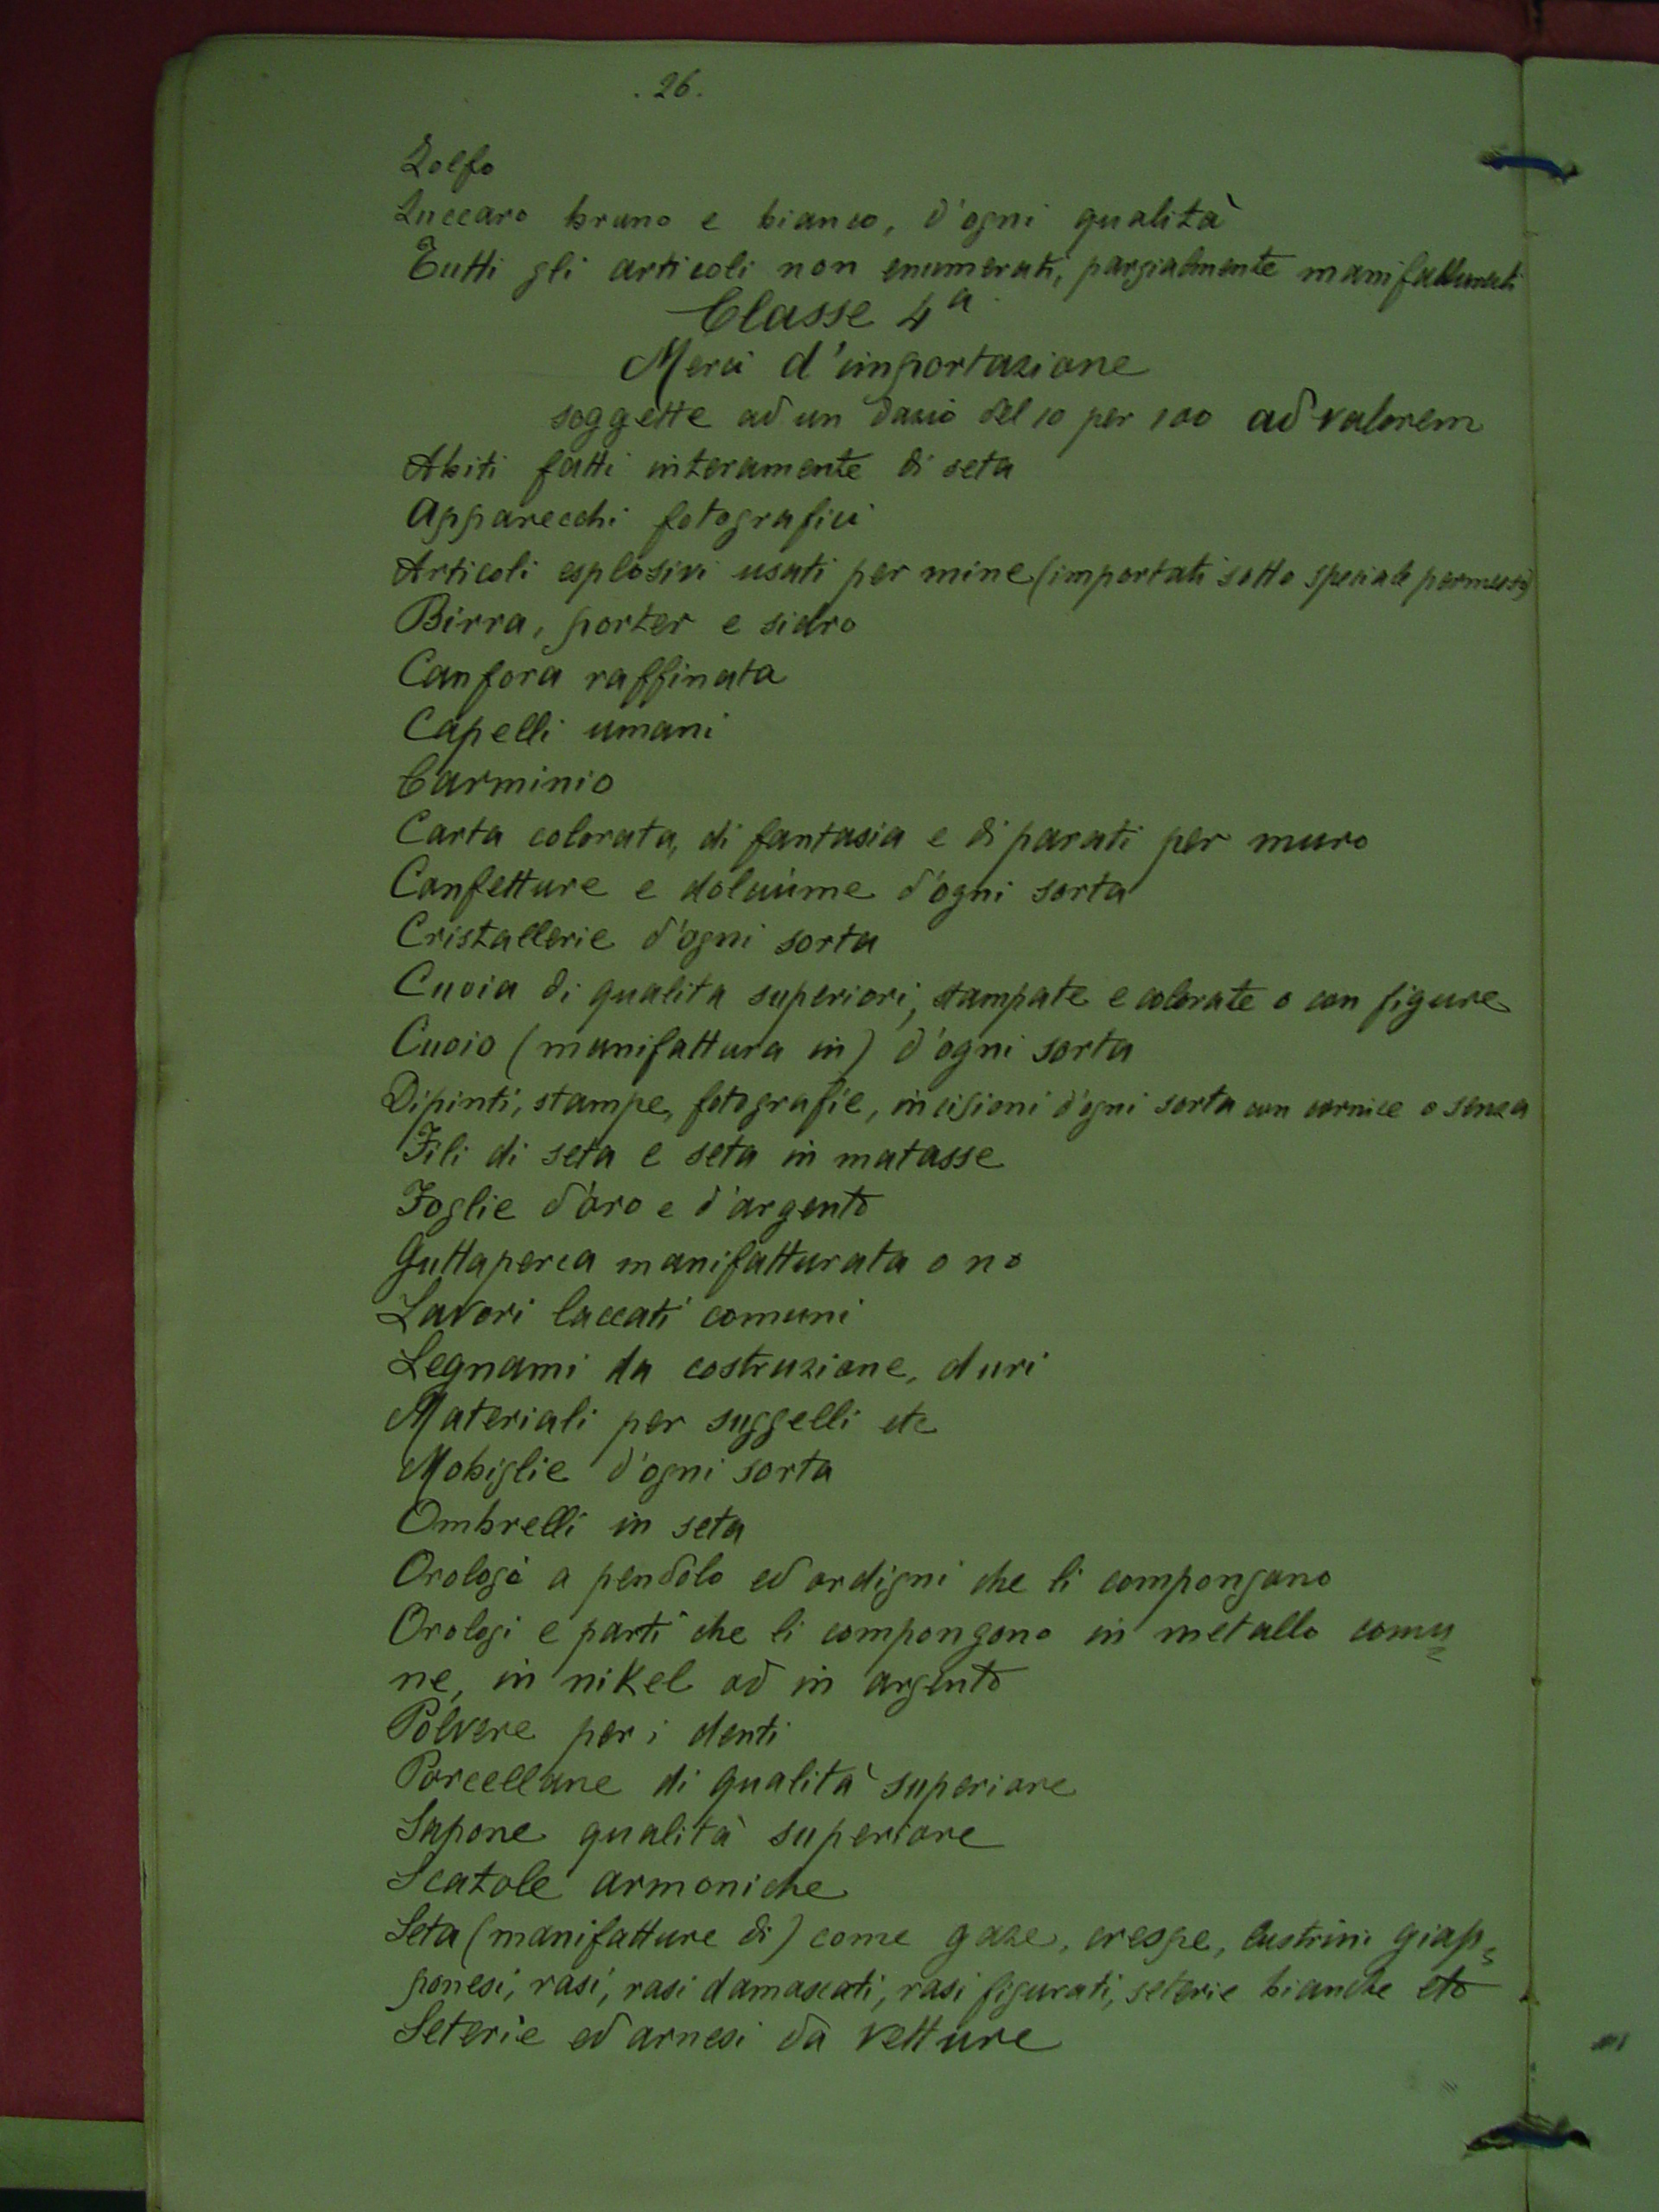 . 26.
Zolfo
Zuccaro bruno e bianco, d'ogni qualità
Tutti gli articoli non enumerati, parzialmente manifatturati
Classe 4a
Merci d'importazione
soggette ad un dazio del 10 per 100 ad valorem
Abiti fatti interamente di seta
Apparecchi fotografici
Articoli esplosivi usati per mine (importati sotto speciale permesso)
Birra, porter e sidro
Canfora raffinata
Capelli umani
Carminio
Carta colorata, di fantasia e di parati per muro
Confetture e dolciume d'ogni sorta
Cristallerie d'ogni sorta
Cuoia di qualita superiori, stampate e colorate o con figure
Cuoio (manifattura in) d'ogni sorta
Dipinti, stampe, fotografie, incisioni d'ogni sorta con cornice o senza
Fili di seta e seta in matasse
Foglie d'oro e d'argento
Guttaperca manifatturata o no
Lavori laccati comuni
Legnami da costruzione, duri
Materiali per suggelli etc
Mobiglie d'ogni sorta
Ombrelli in seta
Orologi a pendolo ed ordigni che li compongono
Orologi e parti che li compongono in metallo comu=
ne, in nikel od in argento
Polvere per i denti
Porcellane di qualità superiore
Sapone qualità superiore
Scatole armoniche
Seta (manifatture di) come gaze, crespe, lustrini giap=
ponesi, rasi, rasi damascati, rasi figurati, seterie bianche etc
Seterie ed arnesi da vetture